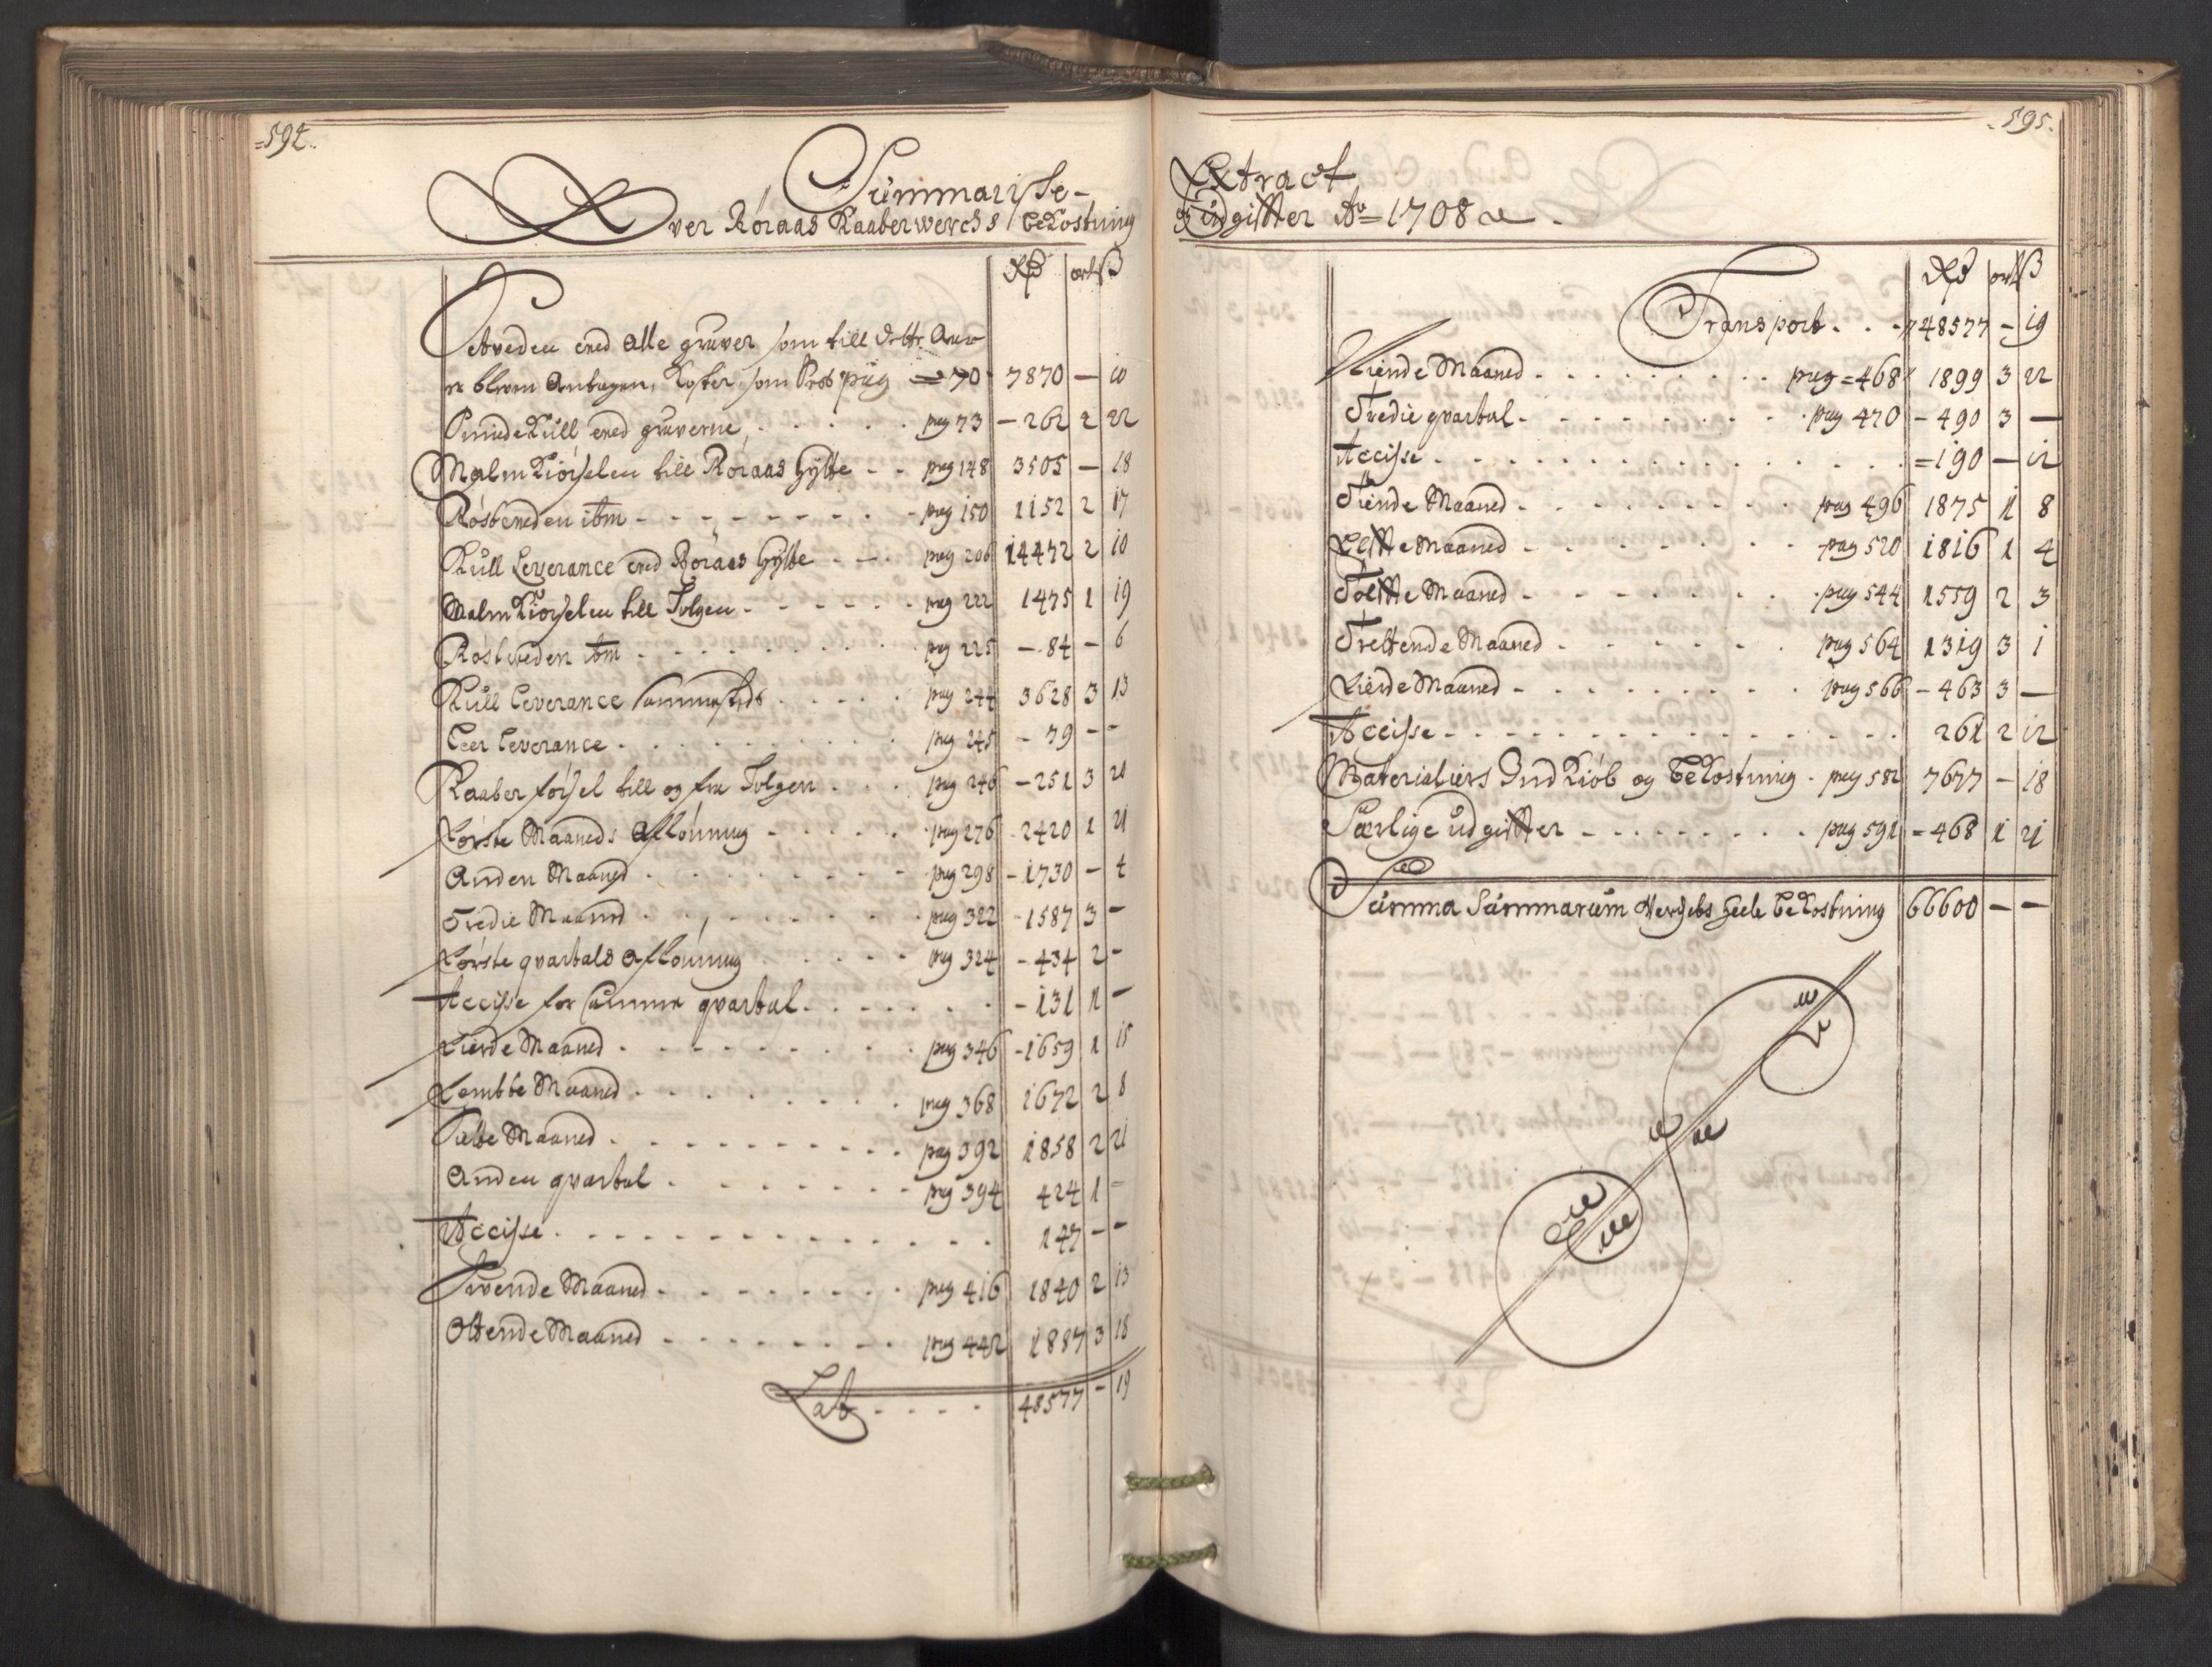 594.
Summariske
Over Røraas Kaaberwerchs bekostning
Rdr ort ß
Sætveden med alle gruver som till dette Aar
er bleven Antagen, Koster som Prob pag 70 7870 — 10
Smidekull med gruverne pag 73 - 262 2 22
Malm Kiørselen till Røraas Hytte pag 148 3505 — 18
Røstveden itm pag 150 1152 2 17
Kull Leverance med Røraas Hytte pag 206 14472 2 10
Malm Kiørselen till Tolgen pag 222 1475 1 19
Røstveden itm pag 225 - 84 - 6
Kull Leverance sammesteds pag 244 3628 3 13
Leer Leverance pag 245 - 79 - -
Kaaberførsel till og fra Tolgen pag 246 - 251 3 20
Første Maaneds Afløning pag 276 2420 1 21
Anden Maaned pag 298 - 1730 - 4
Tredie Maaned pag 322 - 1587 3 -
Første qvartals Afløning pag 324 - 434 2 -
Accisse for samme qvartal - 131 1 -
Fierde Maaned pag 346 - 1659 1 15
Fembte Maaned pag 368 1672 2 8
Siette Maaned pag 392 1858 2 21
Anden qvartal pag 394 424 1 -
Accisse 147 - -
Sivende Maaned pag 416 1840 2 13
Ottende Maaned pag 442 1887 3 18
Lat 48577 - 19
595.
Extract
og udgiffter Ao 1708
Rdr ort ß
Transport 48577 - 19
Niende Maaned pag 468 1899 3 22
Tredie qvartal pag 470 - 490 3 —
Accisse 190 — 12
Tiende Maaned pag 496 1875 1 8
Elffte Maaned pag 520 1816 1 4
Tolffte Maaned pag 544 1559 2 3
Trettende Maaned pag 564 1319 3 1
Fierde Maaned pag 566 - 463 3 —
Accisse 261 2 12
Materialiers Indkiøb og bekostning pag 582 7677 — 18
Særlige udgiffter pag 591 468 1 21
Summa Summarum Verchets heele bekostning 66600 — —